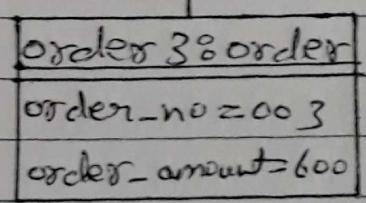 order 3:order
order_no=003
order_amount=600